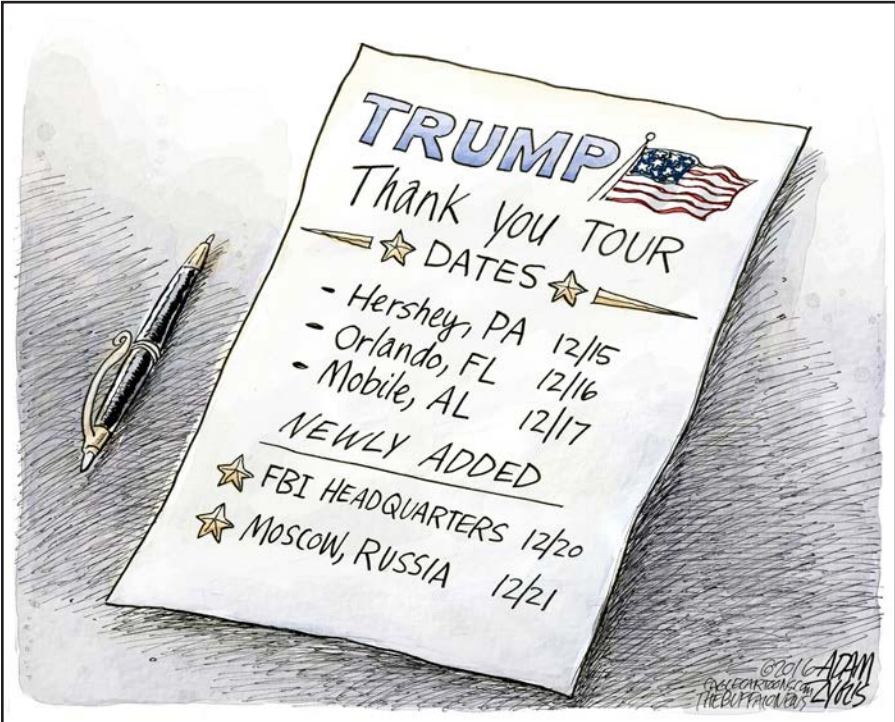 TRUMP
Thank You TOUR
DATES
- Hershey, PA 12/15
- Orlando, FL 12/16
- Mobile, AL 12/17
NEWLY ADDED
FBI HEADQUARTERS 12/20
MOSCOW, RUSSIA 12/21
©2016 ADAM
CAGLECARTOONS.COM
THE BUFFALO NEWS ZYGLIS